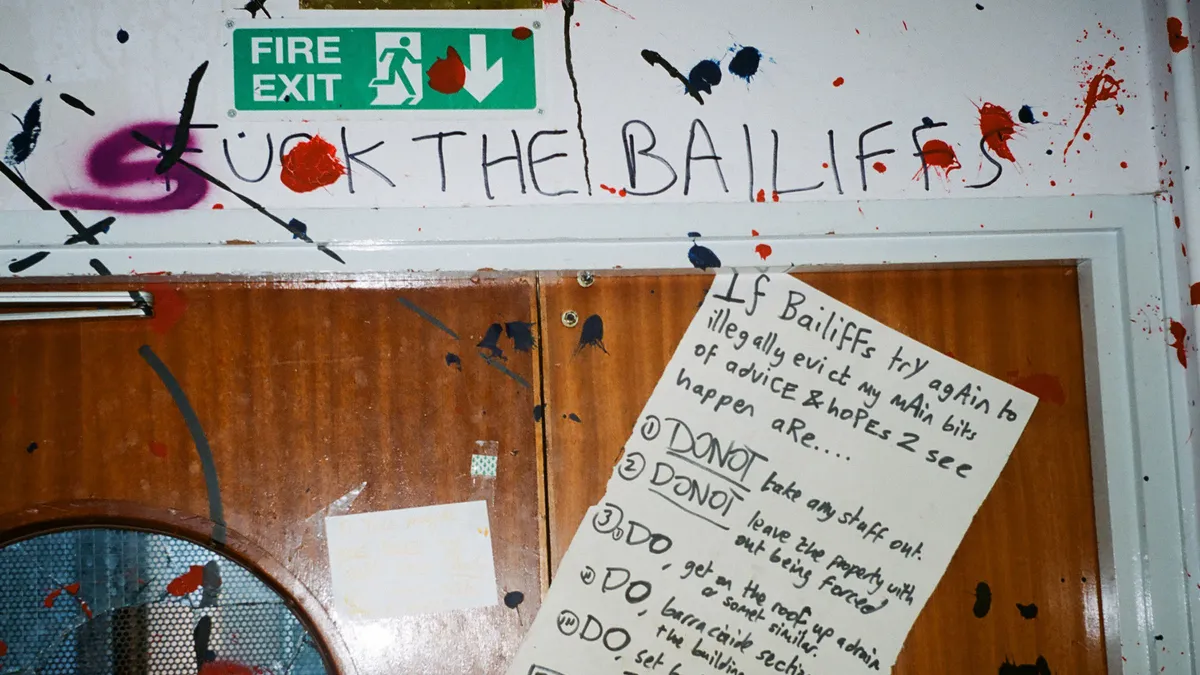 FIRE
EXIT
FUCK THE BAILIFFS
If BailiFFs try agAin to
illegally evict my mAin bits
of adviCE & hoPEs 2 see
happen aRe....
① DONOT take any stuff out.
② DONOT leave the property with
out being forced
③ i) DO, get on the roof, up a drain
or somet similar.
ii) DO, barracaide sectio
the building
iii) DO, set